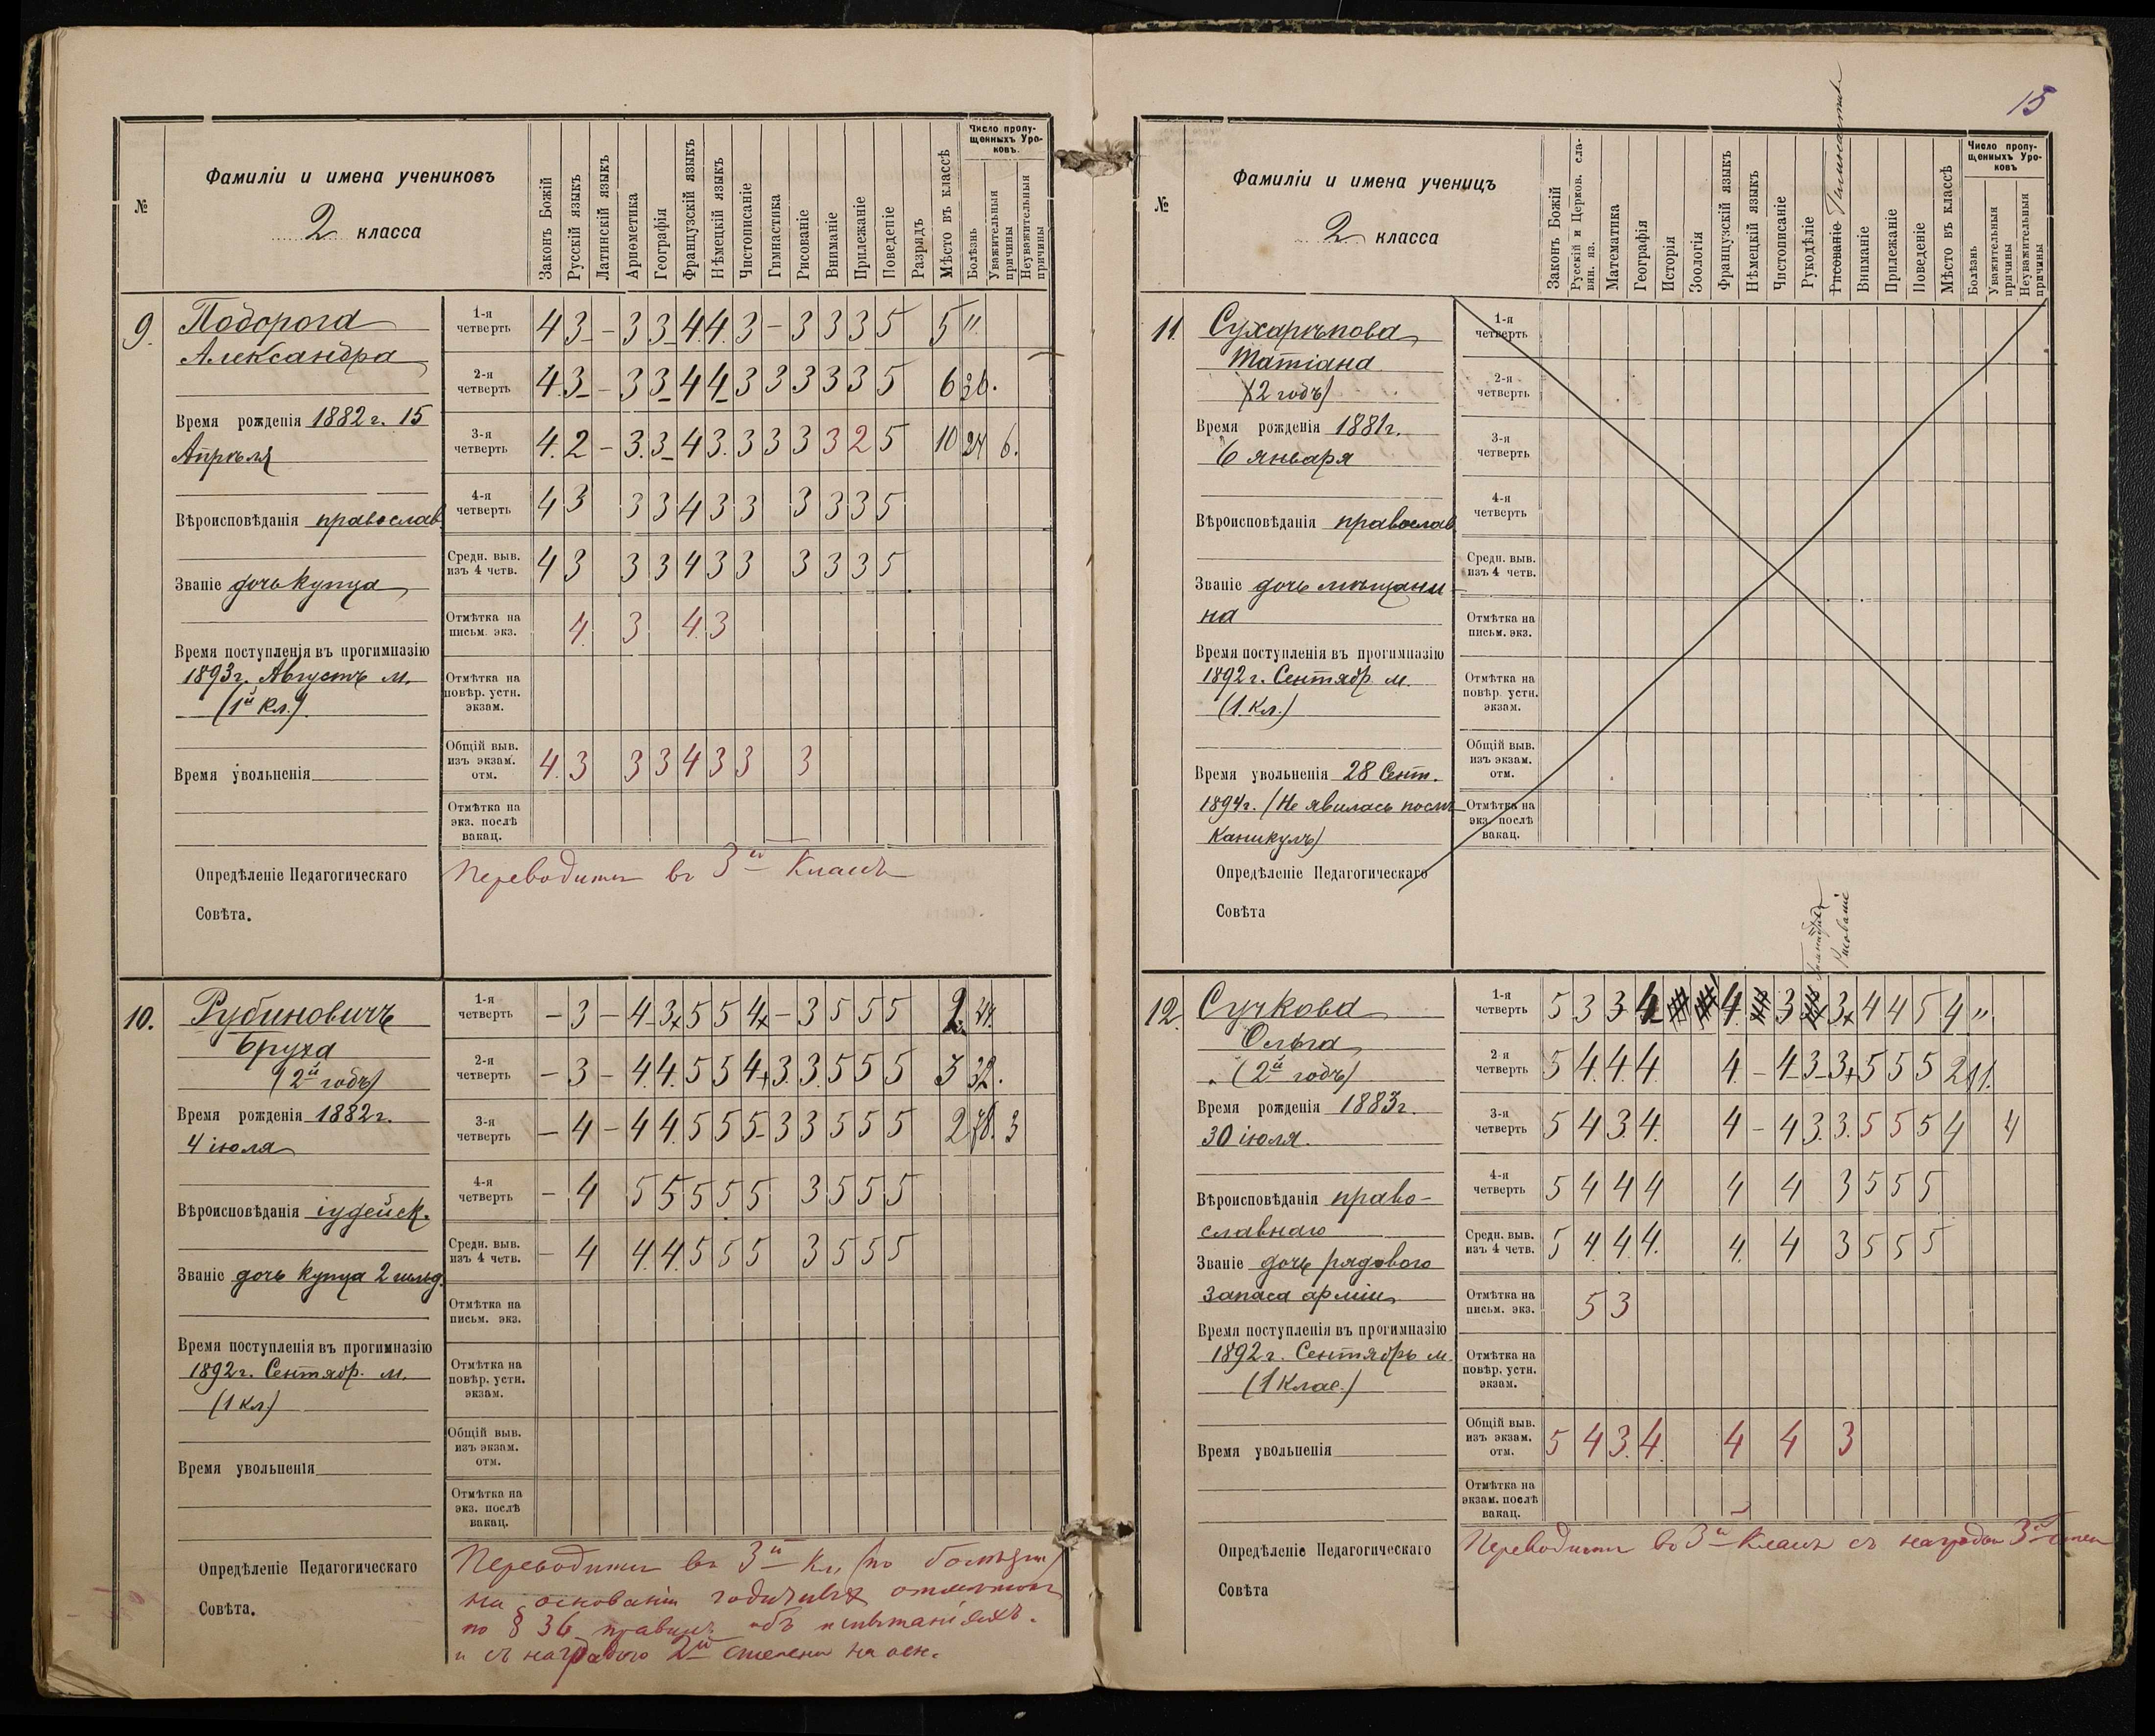 15
№
Фамиліи и имена учениковъ
2 класса
Законъ Божій
Русскій языкъ
Латинскій языкъ
Ариѳметика
Географія
Французскій языкъ
Нѣмецкій языкъ
Чистописаніе
Гимнастика
Рисованіе
Вниманіе
Прилежаніе
Поведеніе
Разрядъ
Мѣсто въ классѣ
Число пропу-
щенныхъ Уро-
ковъ.
Болѣзнь
Уважительныя причины
Неуважительныя причины
9.
Подорога
Александра
Время рожденія 1882 г. 15
Апрѣля
Вѣроисповѣданія православ.
Званіе дочь купца
Время поступленія въ прогимназію
1893 г. Августъ м.
(1й кл.)
Время увольненія
1-я четверть 4 3 - 3 3 4 4 3 - 3 3 3 5 5 "
2-я четверть 4 3 - 3 3 4 4 3 3 3 3 3 5 6 30.
3-я четверть 4. 2 - 3. 3 4 3. 3 3 3 3 2 5 10 24 6.
4-я четверть 4 3 3 3 4 3 3 3 3 3 5
Средн. выв. изъ 4 четв. 4 3 3 3 4 3 3 3 3 3 5
Отмѣтка на письм. экз. 4. 3 4. 3
Отмѣтка на повѣр. устн. экзам.
Общій выв. изъ экзам. отм. 4. 3 3 3 4 3 3 3
Отмѣтка на экз. послѣ вакац.
Опредѣленіе Педагогическаго
Совѣта.
Переводится въ 3й классъ
10.
Рубиновичъ
Бруха
(2й годъ)
Время рожденія 1882 г.
4 іюля
Вѣроисповѣданія іудейск.
Званіе дочь купца 2 гильд.
Время поступленія въ прогимназію
1892 г. Сентябр. м.
(1 кл.)
Время увольненія
1-я четверть - 3 - 4 3 5 5 4 - 3 5 5 5 2. 24.
2-я четверть - 3 - 4. 4. 5 5 4 3. 3. 5 5 5 3 32.
3-я четверть - 4 - 4 4. 5 5 5 3 3 5 5 5 2 78. 3
4-я четверть - 4 5 5 5 5 5 3 5 5 5
Средн. выв. изъ 4 четв. - 4 4. 4. 5 5 5 3 5 5 5
Отмѣтка на письм. экз.
Отмѣтка на повѣр. устн. экзам.
Общій выв. изъ экзам. отм.
Отмѣтка на экз. послѣ вакац.
Опредѣленіе Педагогическаго
Совѣта.
Переводится въ 3й кл. (по болѣзни)
на основаніи годичныхъ отмѣтокъ
по § 36 правилъ объ испытаніяхъ.
и съ наградою 2й степени на осн.
№
Фамиліи и имена ученицъ
2 класса
Законъ Божій
Русскій и Церков. сла-
вян. яз.
Математика
Географія
Исторія
Зоологія
Французскій языкъ
Нѣмецкій языкъ
Чистописаніе
Рукодѣліе
Рисованіе Гимнастика
Вниманіе
Прилежаніе
Поведеніе
Мѣсто въ классѣ
Число пропу-
щенныхъ Уро-
ковъ
Болѣзнь
Уважительныя причины
Неуважительныя причины
11.
Сухарѣпова
Татіана
(2 годъ)
Время рожденія 1881 г.
6 января
Вѣроисповѣданія православ
Званіе дочь мѣщани-
на
Время поступленія въ прогимназію
1892 г. Сентябр. м.
(1 кл.)
Время увольненія 28 Сент.
1894 г. (Не явилась послѣ
каникулъ)
1-я четверть
2-я четверть
3-я четверть
4-я четверть
Средн. выв. изъ 4 четв.
Отмѣтка на письм. экз.
Отмѣтка на повѣр. устн. экзам.
Общій выв. изъ экзам. отм.
Отмѣтка на экз. послѣ вакац.
Опредѣленіе Педагогическаго
Совѣта
Рисованіе
12.
Сучкова
Ольга
(2й годъ)
Время рожденія 1883 г.
30 іюля.
Вѣроисповѣданія право-
славнаго
Званіе дочь рядового
запаса арміи
Время поступленія въ прогимназію
1892 г. Сентябрь м.
(1 клас.)
Время увольненія
1-я четверть 5 3 3 4 4. 3 3 4 4 5 4 "
2-я четверть 5 4. 4. 4. 4 - 4 3 3 5 5 5 2 11.
3-я четверть 5 4 3. 4. 4 - 4 3. 3. 5 5 5 4 4
4-я четверть 5 4 4 4 4 4 3 5 5 5
Средн. выв. изъ 4 четв. 5 4. 4. 4. 4. 4 3 5 5 5
Отмѣтка на письм. экз. 5 3
Отмѣтка на повѣр. устн. экзам.
Общій выв. изъ экзам. отм. 5 4 3. 4. 4 4 3
Отмѣтка на экзам. послѣ вакац.
Опредѣленіе Педагогическаго
Совѣта
Переводится въ 3й классъ съ наградою 3й степ